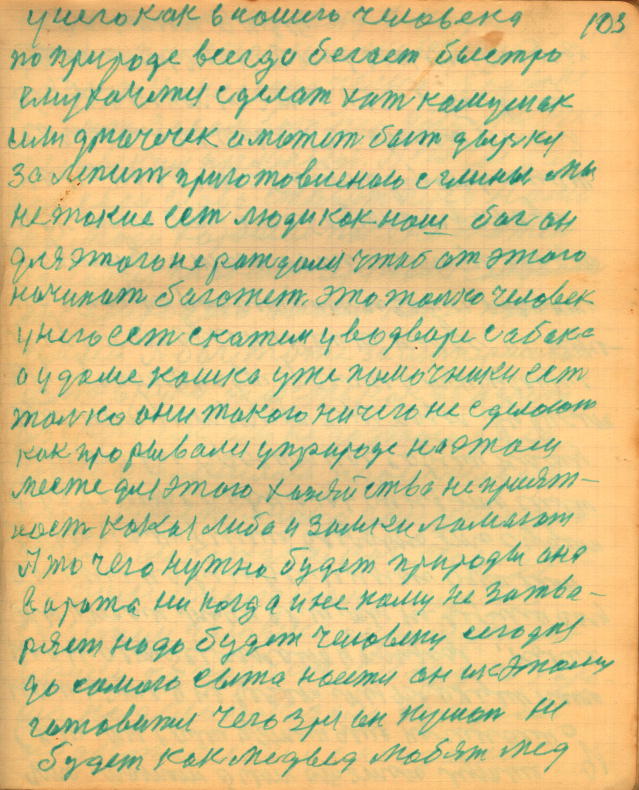 у него как в нашего человека 103
по природе всегда бегает быстро
ему хочетися сделат хат камушек
или дмочек а может быт дырку
залепит приготовиеною с глины мы
не такие ест люди как наш бог он
для этого не рождали чтоб от этого
начинат богатет это толко человек
у него ест скажем у во дворе сабака
а у доме кошка уже помочники ест
толко они такого ничего не сделают
как прорывали у природе на этом
месте для этого хазяйства неприят-
ност кокая либа и замки ламают
А то чего нужна будет природы она
варота никогда и не кому не затва-
ряет надо будет человеку сегодня
до самого света нести он и к этому
готовится чего зря он кушат не
будет как медвед любят мед